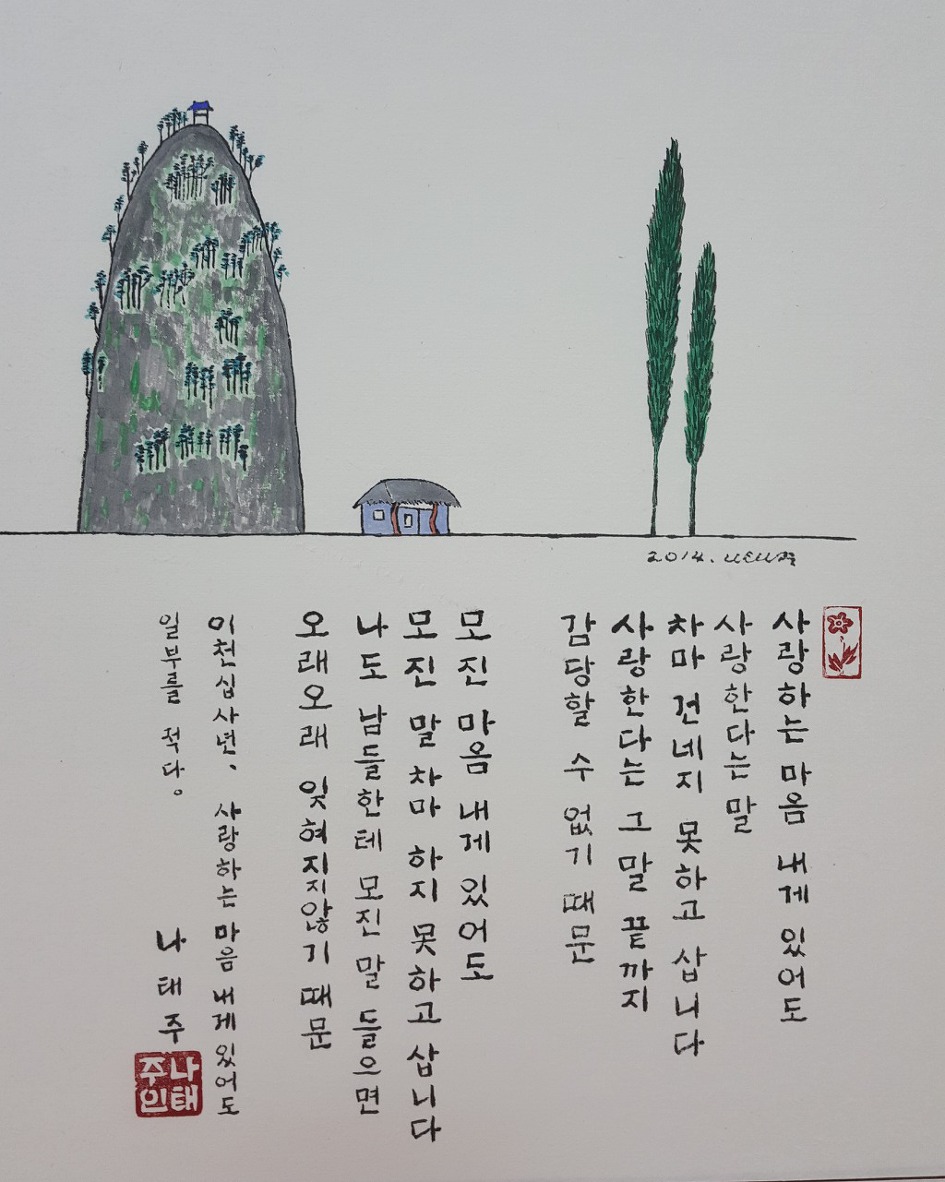 2014. 나태주
사랑하는 마음 내게 있어도
사랑한다는 말
차마 건네지 못하고 삽니다
사랑한다는 그 말 끝까지
감당할 수 없기 때문
모진 마음 내게 있어도
모진 말 차마 하지 못하고 삽니다
나도 남들한테 모진 말 들으면
오래오래 잊혀지지않기 때문
이천십사년、 사랑하는 마음 내게 있어도
일부를 적다。
나태주
나태
주인